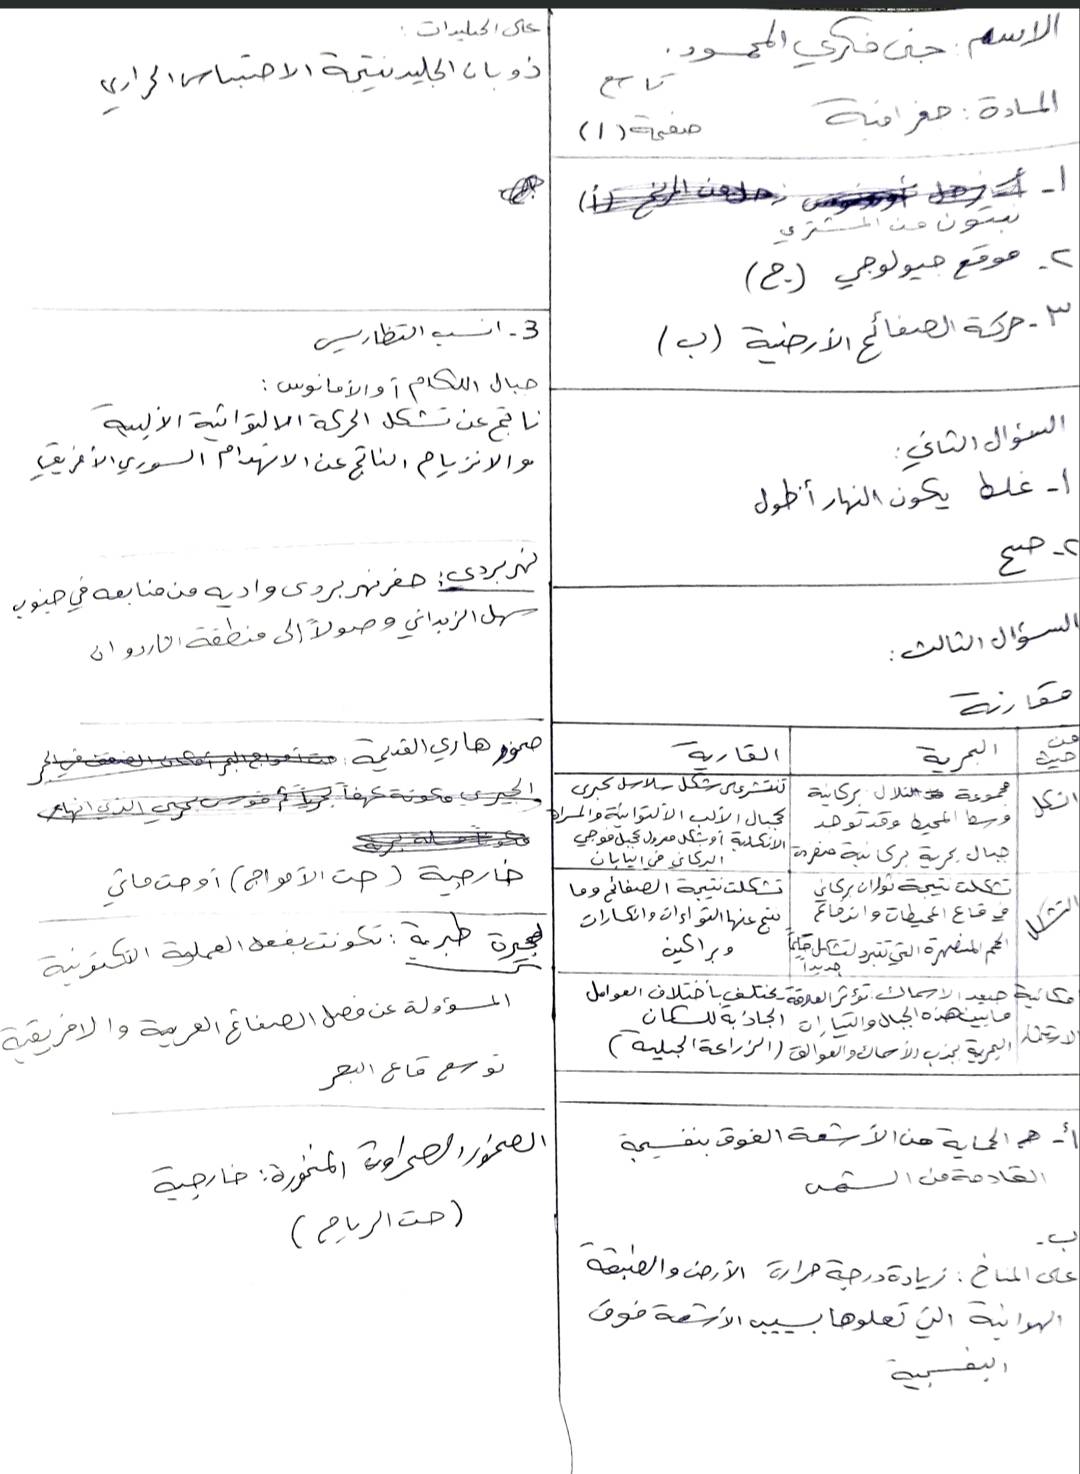 الاسم: جنى فكري المحمود.
تاسع
المادة: جغرافية
صفحة (1)
1-
نبتون من المشتري
٢- موقع جيولوجي (ج)
٣- حركة الصفائح الأرضية (ب)
السؤال الثاني:
1- غلط يكون النهار أطول
٢- صح
السؤال الثالث:
مقارنة
من حيث البحرية القارية
الشكل مجموعة تلال بركانية تنتشر على شكل سلاسل كبرى
وسط المحيط وقد توجد كجبال الألب الألتوائية والمراد
جبال بحرية بركانية منفردة الانكسارية أو شكل مفرد كجبل فوجي
البركاني في اليابان
التشكل تشكلت نتيجة ثوران بركاني تشكلت نتيجة الصفائح وما
في قاع المحيطات واندفاع نتج عنها التواءات وانكسارات
الحمم المنصهرة التي تتبرد لتشكل وبراكين
جديداً
مكانية صيد الاسماك: تؤثر العلاقة تختلف بأختلاف العوامل
الاستثمار ما بين هذه الجبال والتيارات الجاذبة للسكان
البحرية بجذب الأسماك والعوالق (الزراعة الجبلية)
أ- هو الحماية من الأشعة الفوق بنفسجية
القادمة من الشمس
ب-
على المناخ: زيادة درجة حرارة الأرض والطبقة
الهوائية التي تعلوها بسبب الأشعة فوق
البنفسجية
على الجليدات:
ذوبان الجليد نتيجة الاحتباس الحراري
3- انسب التظاريس
جبال اللكام أو الأمانوس:
ناتج عن تشكل الحركة الالتوائية الألبية
والانزياح الناتج عن الانهدام السوري الأفريقي
نهر بردى: حفر نهر بردى واديه من منابعه في جنوب
سهل الزبداني وصولاً إلى منطقة
صخور هاري القديمة:
خارجية (حت الأمواج) أو حت مائي
بحيرة طبرية: تكونت بفعل العملية التكتونية
المسؤولة عن فصل الصفائح العربية والافريقية
توسع قاع البحر
الصخور الصحراوية المنخورة: خارجية
(حت الرياح)